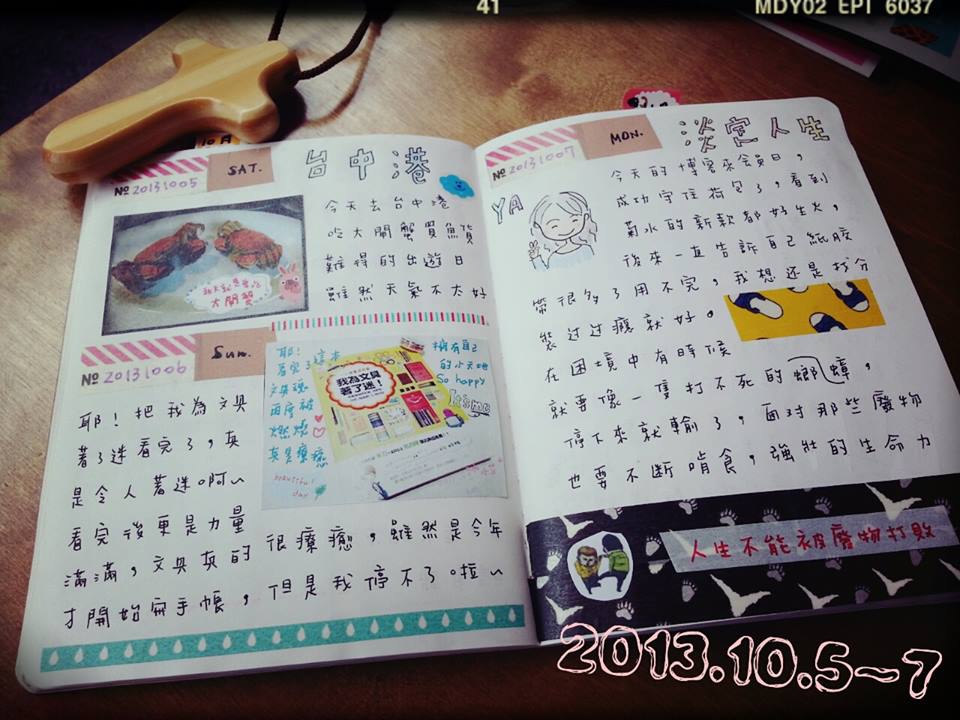 41
MDY02 EPT 6037
10月
No 20131005
SAT.
台中港
今天去台中港
吃大閘蟹買魚貨
難得的出遊日
雖然天氣不太好
大閘蟹
No 20131006
Sun.
耶!
看完了這本
文具魂
再度被
燃燒
真是療癒
beautiful!
day
擁有自己
的小天地
So happy
我為文具
著了迷!
耶!把我為文具
著了迷看完了,真
是令人著迷啊~
看完後更是力量
滿滿,文具真的很療癒,雖然是今年
才開始寫手帳,但是我停不了啦~
No 20131007
MON.
淡定人生
YA
今天的博客來會員日,
成功守住荷包了,看到
菊水的新款都好生火,
後來一直告訴自己紙膠
帶很多了用不完,我想還是打分
裝过过癮就好。
在困境中有時候
就要像一隻打不死的蟑螂,
停下來就輸了,面对那些廢物
也要不斷啃食,強壯的生命力
人生不能被廢物打敗
2013.10.5~7